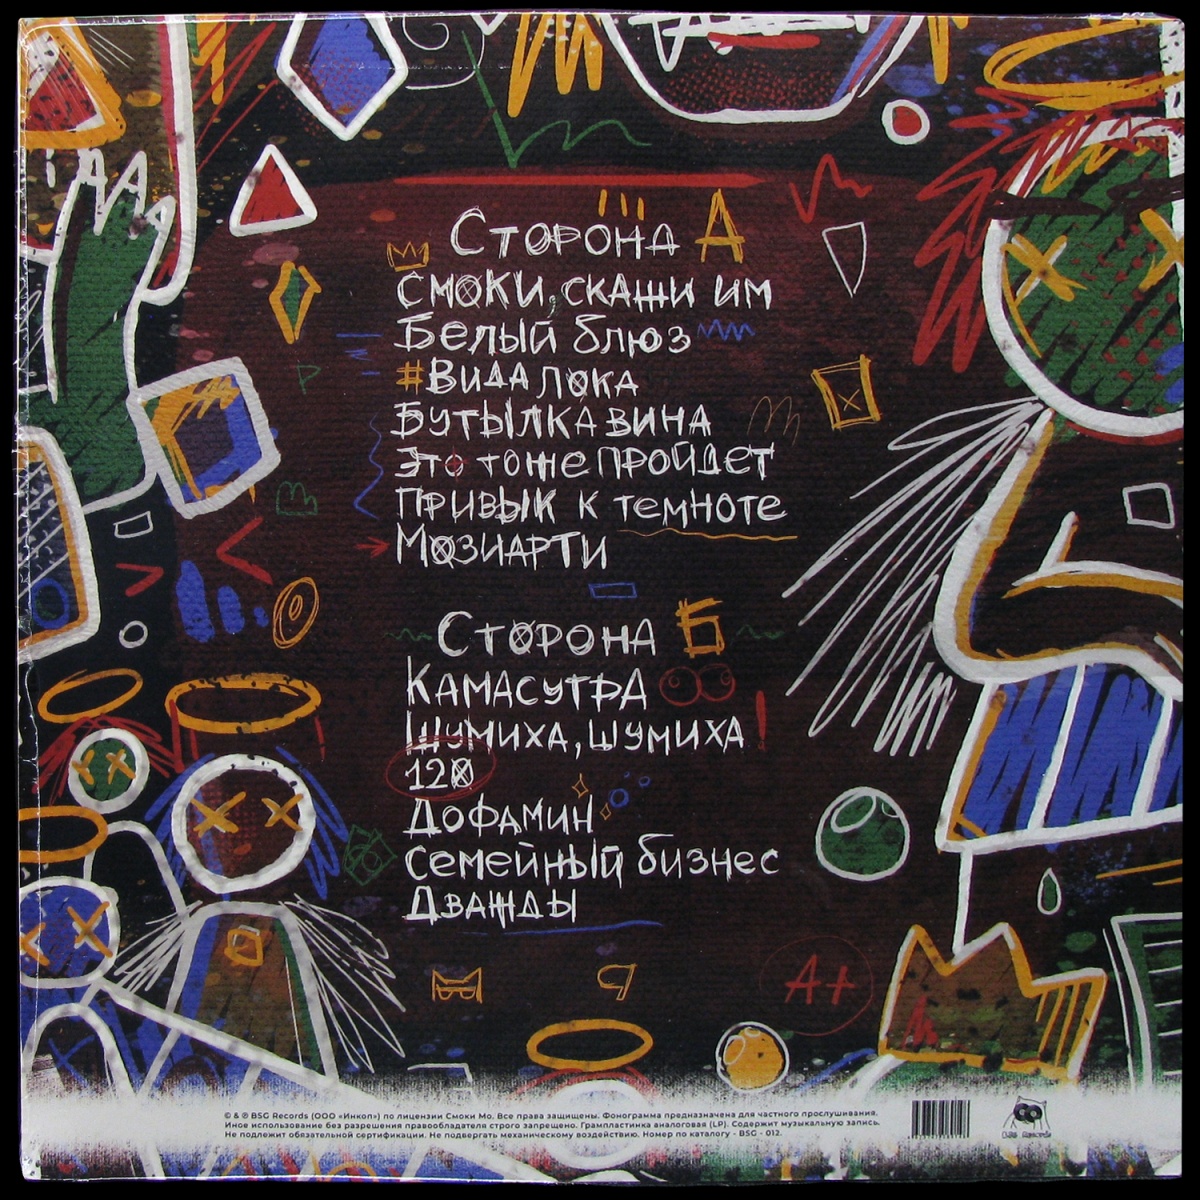 Сторона А
Смоки, скажи им
Белый блюз
#Вида лока
Бутылка вина
Это тоже пройдет
Привык к темноте
Мозиарти
Сторона Б
Камасутра
Шумиха, шумиха
120
Дофамин
Семейный бизнес
Дважды
A+
© & ℗ BSG Records (ООО «Инкоп») по лицензии Смоки Мо. Все права защищены. Фонограмма предназначена для частного прослушивания.
Иное использование без разрешения правообладателя строго запрещено. Грампластинка аналоговая (LP). Содержит музыкальную запись.
Не подлежит обязательной сертификации. Не подвергать механическому воздействию. Номер по каталогу - BSG - 012.